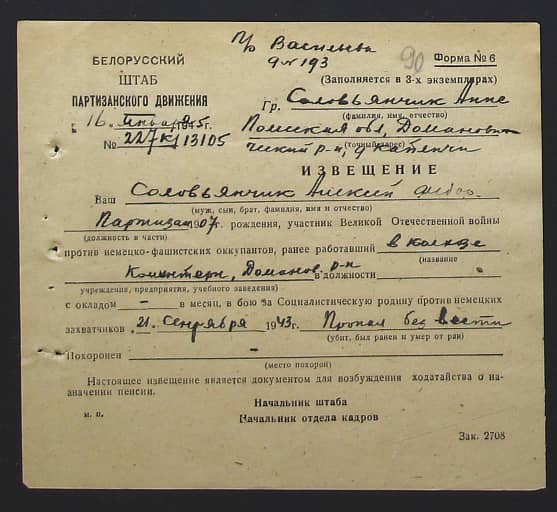 п/о Васильева
9 л 193
90
БЕЛОРУССКИЙ
ШТАБ
ПАРТИЗАНСКОГО ДВИЖЕНИЯ
Форма № 6
(Заполняется в 3-х экземплярах)
16 января 1945г.
№ 227к/13105
Гр. Соловьянчик Анне
(фамилия, имя, отчество)
Полесская обл, Доманович
(точный адрес)
ческий р-н,
ИЗВЕЩЕНИЕ
Ваш Соловьянчик Алексей Федор.
(муж, сын, брат, фамилия, имя и отчество)
Партизан 1907 г. рождения, участник Великой Отечественной войны
(должность в части)
против немецко-фашистских оккупантов, ранее работавший в колхозе
(название
Коминтерн, Доманов. р-н в должности
учреждения, предприятия, учебного заведения)
с окладом – в месяц, в бою за Социалистическую родину против немецких
захватчиков 21 сентября 1943г. Пропал без вести
(убит, был ранен и умер от ран)
Похоронен –
(место похорон)
Настоящее извещение является документом для возбуждения ходатайства о на-
значении пенсии.
Начальник штаба
м. п.
Начальник отдела кадров
Зак. 2708